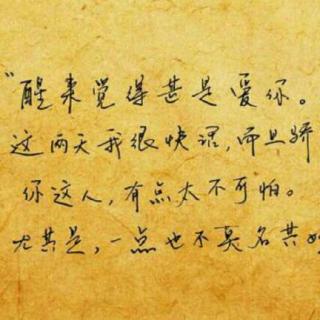 “醒来觉得甚是爱你。
这两天我很快活,而且骄
你这人,有点太不可怕。
尤其是,一点也不莫名其妙